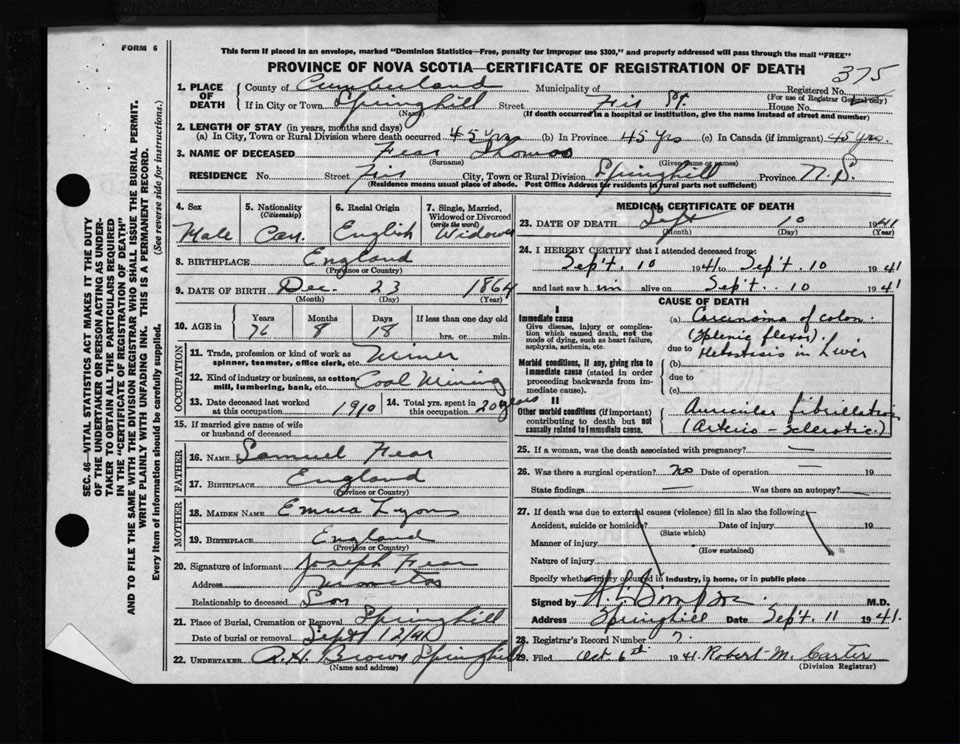 FORM 6
This form if placed in an envelope, marked "Dominion Statistics—Free, penalty for improper use $300," and properly addressed will pass through the mail "FREE"
PROVINCE OF NOVA SCOTIA—CERTIFICATE OF REGISTRATION OF DEATH
375
1. PLACE OF DEATH County of Cumberland Municipality of Registered No.
(For use of Registrar General only)
If in City or Town Springhill Street Fir St. House No.
(Name) (If death occurred in a hospital or institution, give the name instead of street and number)
2. LENGTH OF STAY (in years, months and days)
(a) In City, Town or Rural Division where death occurred 45 yrs (b) In Province 45 yrs (c) In Canada (if immigrant) 45 yrs.
3. NAME OF DECEASED Fear Thomas
(Surname) (Given name or names)
RESIDENCE No. Street Fir City, Town or Rural Division Springhill Province N.S.
(Residence means usual place of abode. Post Office Address for residents in rural parts not sufficient)
4. Sex Male
5. Nationality (Citizenship) Can.
6. Racial Origin English
7. Single, Married, Widowed or Divorced (write the word) Widower
8. BIRTHPLACE England
(Province or Country)
9. DATE OF BIRTH Dec. 23 1864
(Month) (Day) (Year)
10. AGE in Years Months Days If less than one day old
76 8 18 hrs. or min.
OCCUPATION
11. Trade, profession or kind of work as spinner, teamster, office clerk, etc. Miner
12. Kind of industry or business, as cotton mill, lumbering, bank, etc. Coal Mining
13. Date deceased last worked at this occupation 1910
14. Total yrs. spent in this occupation 20 years
15. If married give name of wife or husband of deceased
FATHER
16. NAME Samuel Fear
17. BIRTHPLACE England
(Province or Country)
MOTHER
18. MAIDEN NAME Emma Lyons
19. BIRTHPLACE England
(Province or Country)
20. Signature of informant Joseph Fear
Address
Relationship to deceased Son
21. Place of Burial, Cremation or Removal Springhill
Date of burial or removal Sept 12/41
22. UNDERTAKER A.H. Brown Springhill
(Name and address)
MEDICAL CERTIFICATE OF DEATH
23. DATE OF DEATH Sept 10 1941
(Month) (Day) (Year)
24. I HEREBY CERTIFY that I attended deceased from:
Sept. 10 1941 to Sept. 10 1941
and last saw him alive on Sept. 10 1941
CAUSE OF DEATH
I
Immediate cause
Give disease, injury or complication which caused death, not the mode of dying, such as heart failure, asphyxia, asthenia, etc.
(a) Carcinoma of colon.
(Splenic flexor)
due to Metastasis in Liver
Morbid conditions, if any, giving rise to immediate cause (stated in order proceeding backwards from immediate cause).
(b)
due to
(c)
II
Other morbid conditions (if important) contributing to death but not causally related to immediate cause.
Auricular fibrillation
(Arterio-sclerotic)
25. If a woman, was the death associated with pregnancy? —
26. Was there a surgical operation? no Date of operation — 19
State findings — Was there an autopsy? —
27. If death was due to external causes (violence) fill in also the following:
Accident, suicide or homicide? Date of injury 19
(State which)
Manner of injury
(How sustained)
Nature of injury
Specify whether injury occurred in industry, in home, or in public place
Signed by Simpson M.D.
Address Springhill Date Sept 11 1941.
28. Registrar's Record Number 7.
29. Filed Oct 6th 1941 Robert M. Carter
(Division Registrar)
SEC. 46—VITAL STATISTICS ACT MAKES IT THE DUTY
OF THE UNDERTAKER OR PERSON ACTING AS UNDER-
TAKER TO OBTAIN ALL THE PARTICULARS REQUIRED
IN THE "CERTIFICATE OF REGISTRATION OF DEATH"
AND TO FILE THE SAME WITH THE DIVISION REGISTRAR WHO SHALL ISSUE THE BURIAL PERMIT.
WRITE PLAINLY WITH UNFADING INK. THIS IS A PERMANENT RECORD.
Every item of information should be carefully supplied. (See reverse side for instructions.)